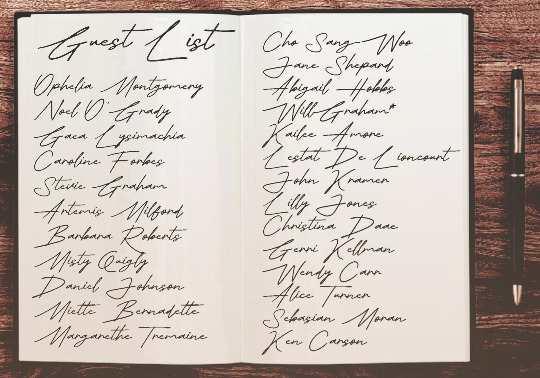 Guest List
Ophelia Montgomery
Noel O'Grady
Gaea Lysimachia
Caroline Forbes
Stevie Graham
Artemis Milford
Barbara Roberts
Misty Quigly
Daniel Johnson
Miette Bernadette
Margarethe Tremaine
Cho Sang-Woo
Jane Shepard
Abigail Hobbs
Will Graham*
Kailee Amore
Lestat De Lioncourt
John Kramer
Lilly Jones
Christina Daae
Gerri Kellman
Wendy Carr
Alice Turner
Sebasian Moran
Ken Carson